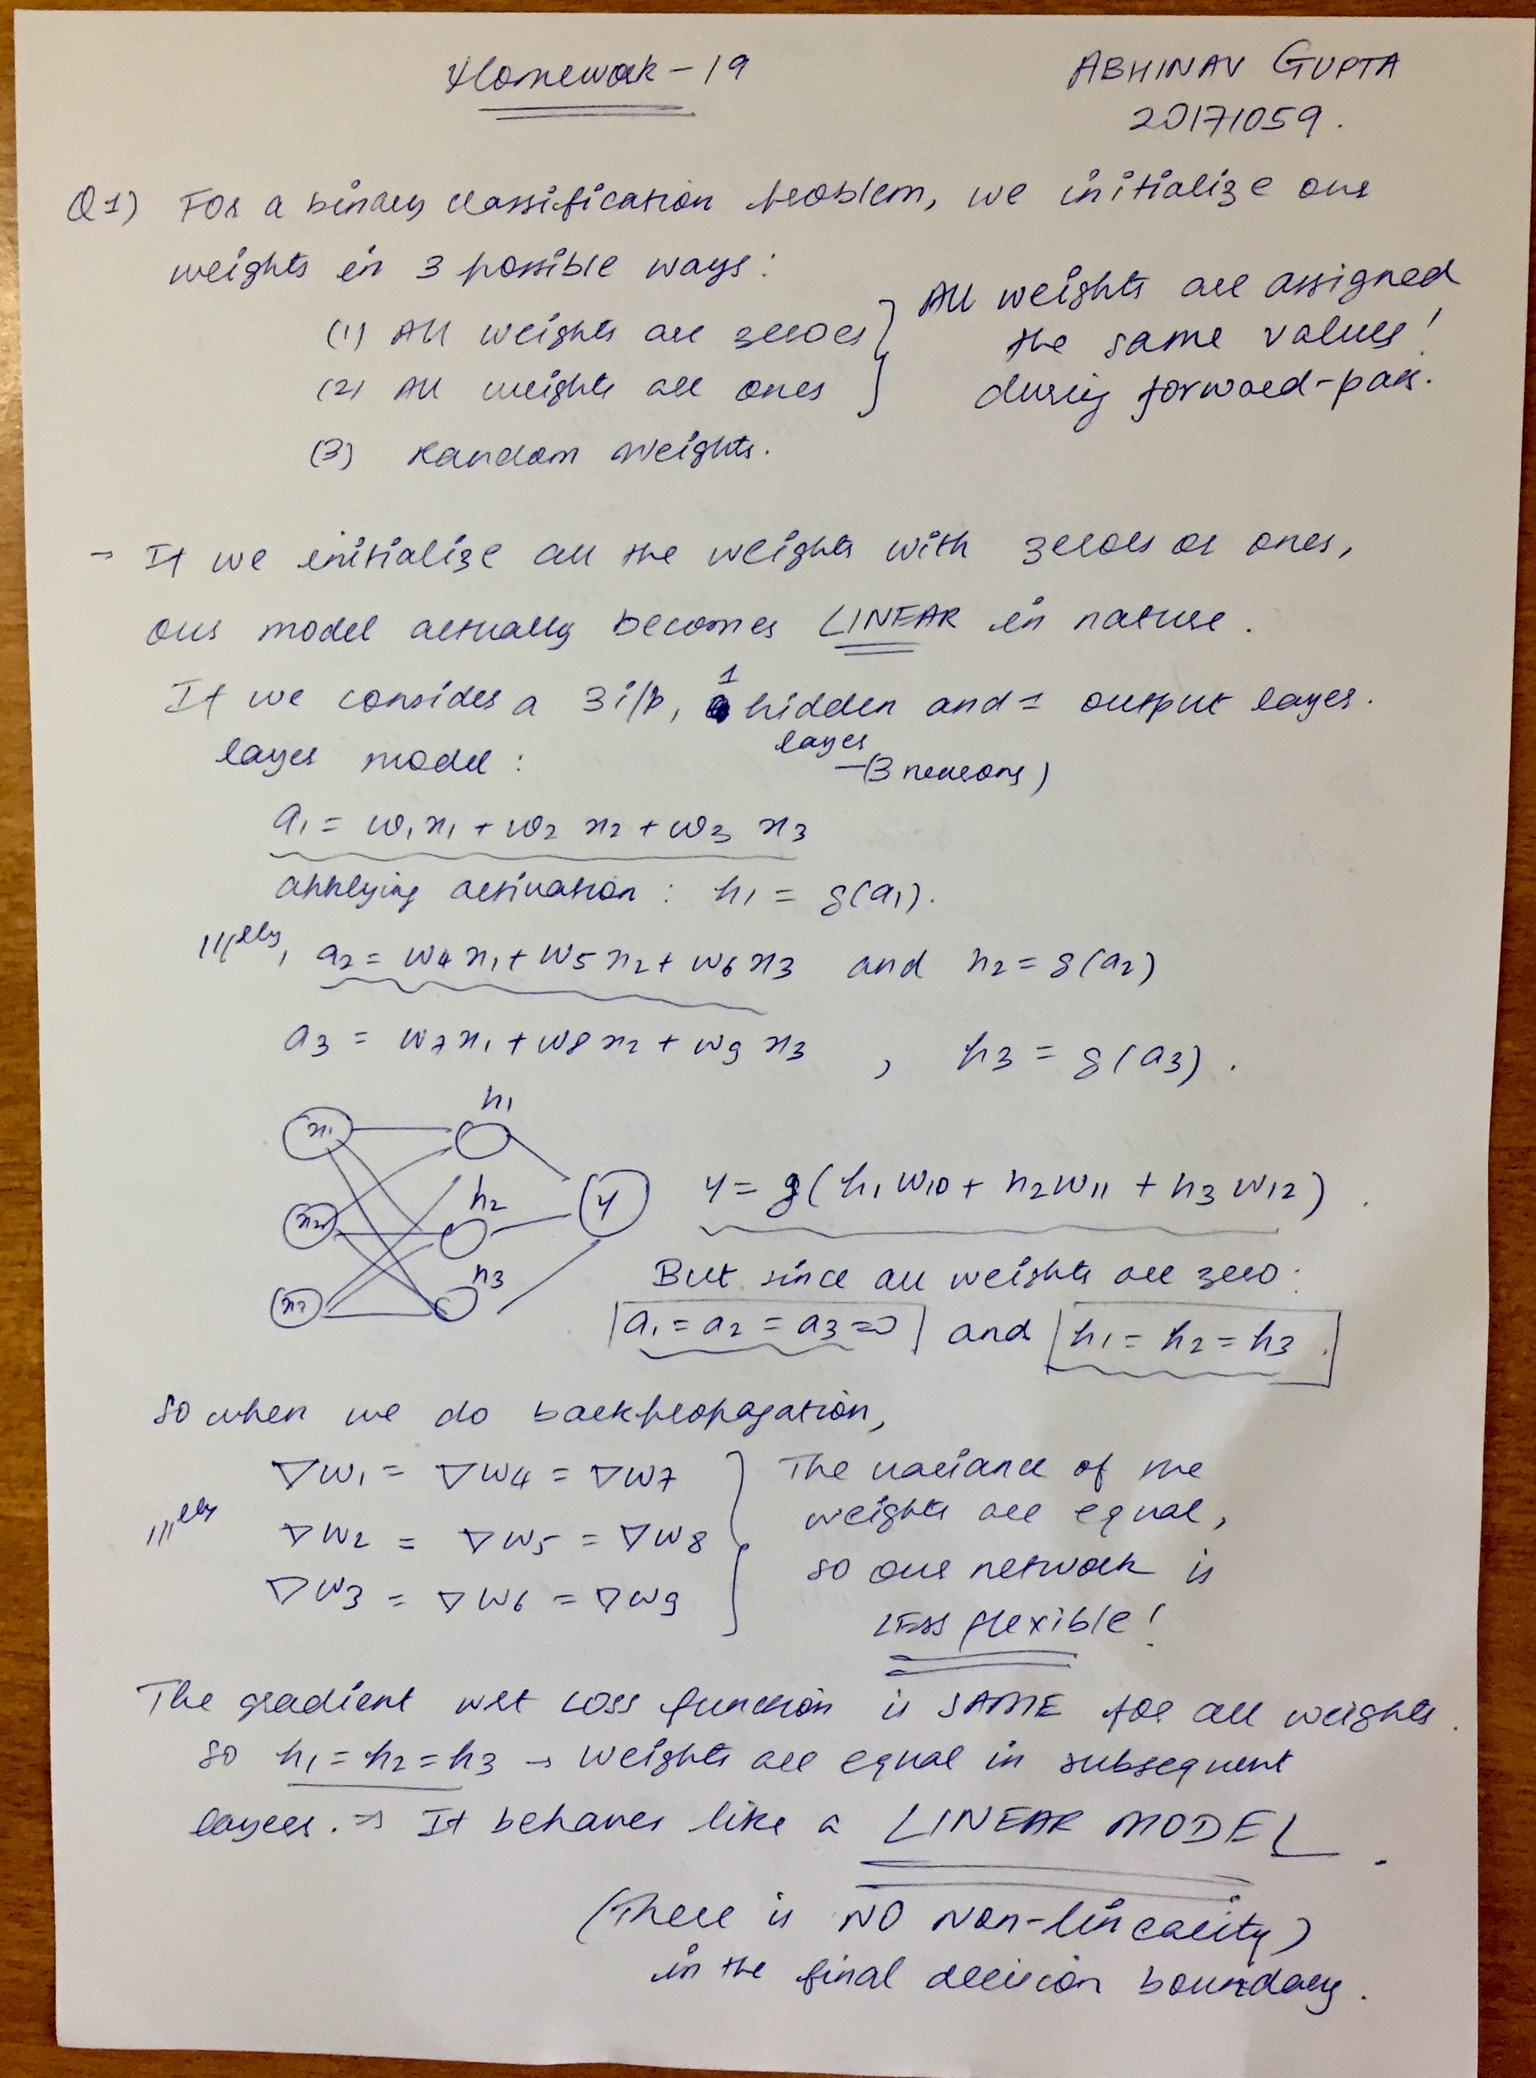 Homework - 19
ABHINAV GUPTA
20171059.
Q1) For a binary classification problem, we initialize our
weights in 3 possible ways:
(1) All weights are zeroes
(2) All weights are ones
(3) Random weights.
All weights are assigned
the same values!
during forward-pass.
→ If we initialize all the weights with zeroes or ones,
our model actually becomes LINEAR in nature.
If we consider a 3 i/p, 1 hidden and 1 output layer.
layer
layer model:
-(3 neurons)
a1 = w1x1 + w2 x2 + w3 x3
applying activation: h1 = g(a1).
|||lly, a2 = w4x1 + w5x2 + w6x3 and h2 = g(a2)
a3 = w7x1 + w8x2 + w9 x3 , h3 = g(a3).
x1
h1
x2
h2
x3
h3
y
y = g(h1w10 + h2w11 + h3w12).
But since all weights are zero:
a1 = a2 = a3 = 0 and h1 = h2 = h3.
So when we do backpropagation,
∇w1 = ∇w4 = ∇w7
|||lly ∇w2 = ∇w5 = ∇w8
∇w3 = ∇w6 = ∇w9
The variance of the
weights are equal,
so our network is
LESS flexible!
The gradient wrt loss function is SAME for all weights.
so h1 = h2 = h3 → weights are equal in subsequent
layers. ⇒ It behaves like a LINEAR MODEL.
(There is NO Non-linearity)
in the final decision boundary.